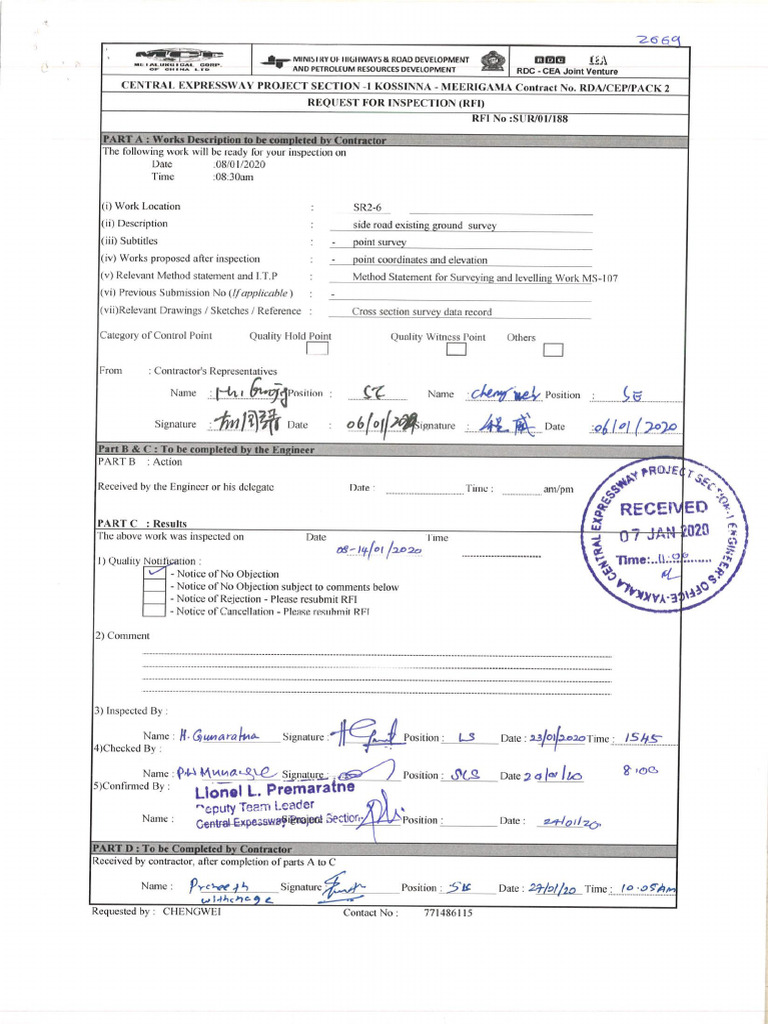 2669
MCC
METALLURGICAL CORP.
OF CHINA LTD.
MINISTRY OF HIGHWAYS & ROAD DEVELOPMENT
AND PETROLEUM RESOURCES DEVELOPMENT
RDC CEA
RDC - CEA Joint Venture
CENTRAL EXPRESSWAY PROJECT SECTION -I KOSSINNA - MEERIGAMA Contract No. RDA/CEP/PACK 2
REQUEST FOR INSPECTION (RFI)
RFI No :SUR/01/188
PART A : Works Description to be completed by Contractor
The following work will be ready for your inspection on
Date :08/01/2020
Time :08:30am
(i) Work Location : SR2-6
(ii) Description : side road existing ground survey
(iii) Subtitles : - point survey
(iv) Works proposed after inspection : - point coordinates and elevation
(v) Relevant Method statement and I.T.P : Method Statement for Surveying and levelling Work MS-107
(vi) Previous Submission No (If applicable ) : -
(vii)Relevant Drawings / Sketches / Reference : Cross section survey data record
Category of Control Point Quality Hold Point Quality Witness Point Others
From : Contractor's Representatives
Name : Position : Name : Cheng wei Position : SE
Signature : Date : 06/01/2020 Signature : 程威 Date :06/01/2020
Part B & C : To be completed by the Engineer
PART B : Action
Received by the Engineer or his delegate Date : Time : am/pm
CENTRAL EXPRESSWAY PROJECT SECTION-1 ENGINEER'S OFFICE-YAKKALA
RECEIVED
07 JAN 2020
Time:
PART C : Results
The above work was inspected on Date Time
08-14/01/2020
1) Quality Notification :
- Notice of No Objection
- Notice of No Objection subject to comments below
- Notice of Rejection - Please resubmit RFI
- Notice of Cancellation - Please resubmit RFI
2) Comment
3) Inspected By :
Name : H. Gunaratna Signature : Position : LS Date : 23/01/2020 Time : 1545
4)Checked By :
Name : Signature : Position : SCS Date 8:00
5)Confirmed By :
Lionel L. Premaratne
Deputy Team Leader
Central Expessway Project Section
Name : Position : Date : 24/01/20
PART D : To be Completed by Contractor
Received by contractor, after completion of parts A to C
Name : Signature Position : Date : 27/01/20 Time : 10.05AM
Requested by : CHENGWEI Contact No : 771486115